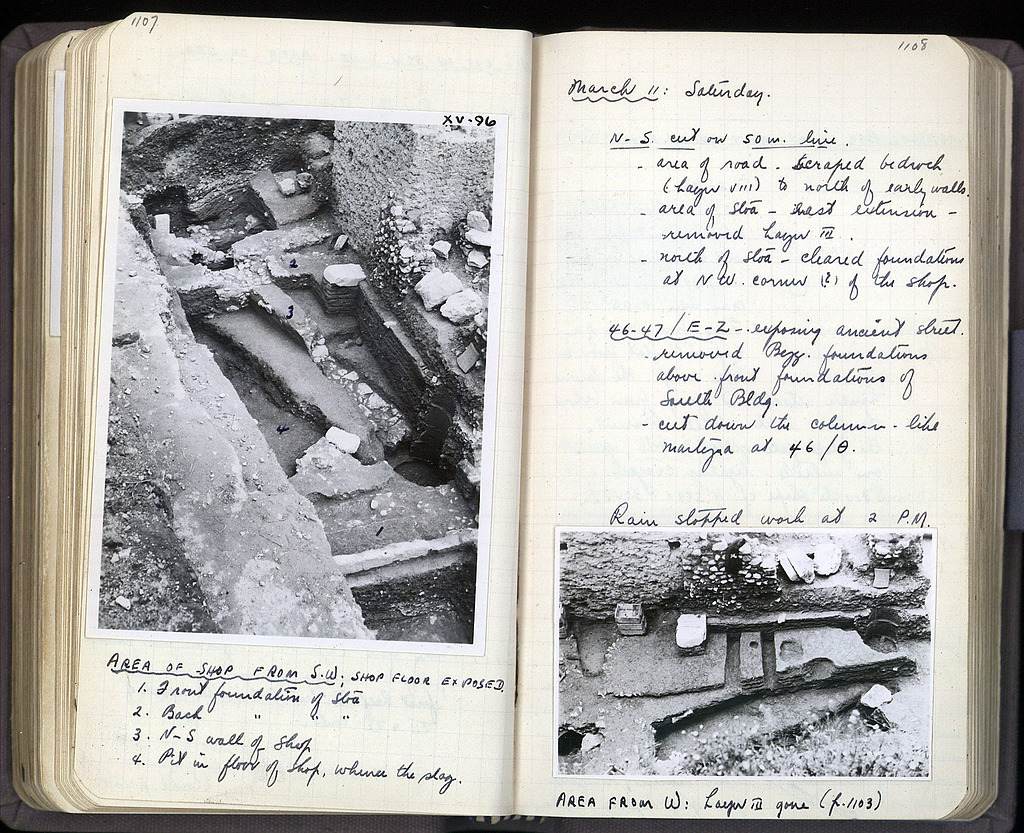 1107
XV-96
2
3
4
1
AREA OF SHOP FROM S.W; SHOP FLOOR EXPOSED
1. Front foundation of Stoa
2. Back " " "
3. N-S wall of Shop
4. Pit in floor of shop, whence the slag.
1108
March 11: Saturday.
N-S. cut on 50 m. line.
- area of road - scraped bedrock
(Layer VIII) to north of early walls.
- area of Stoa - East extension -
removed Layer III.
- north of Stoa - cleared foundations
at N.W. corner (?) of the shop.
46-47/E-Z - exposing ancient street.
- removed Byz. foundations
above front foundations of
South Bldg.
- cut down the column-like
at 46/Θ.
Rain stopped work at 2 P.M.
AREA FROM W: Layer III gone (p.1103)